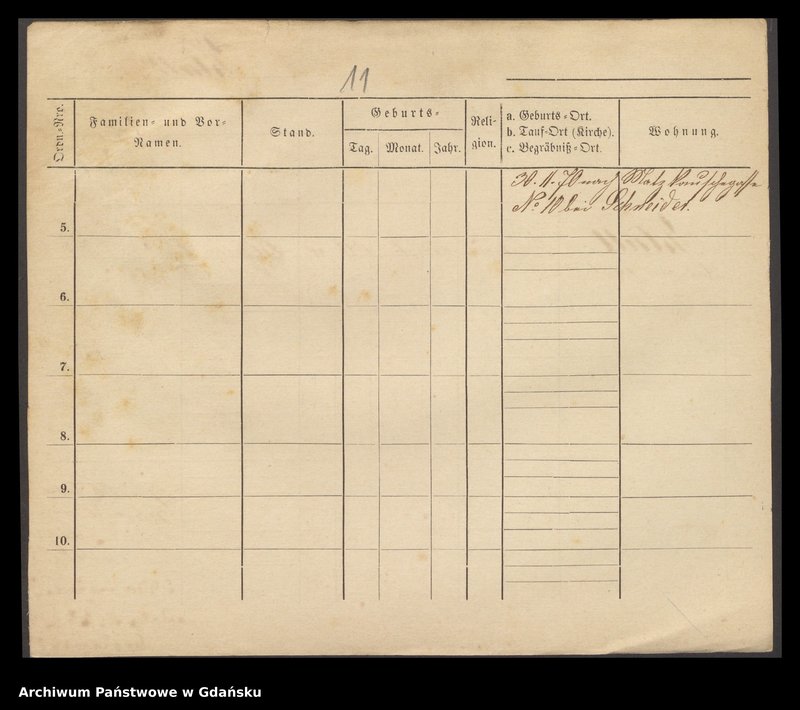 11
Ordn=Nro.
Familien= und Vor=
Namen.
Stand.
Geburts=
Tag. Monat. Jahr.
Reli=
gion.
a. Geburts=Ort.
b. Tauf=Ort (Kirche).
c. Begräbniß=Ort.
Wohnung.
30.11.70 nach Matzkauschegasse
No 10 bei Schneider.
5.
6.
7.
8.
9.
10.
Archiwum Państwowe w Gdańsku